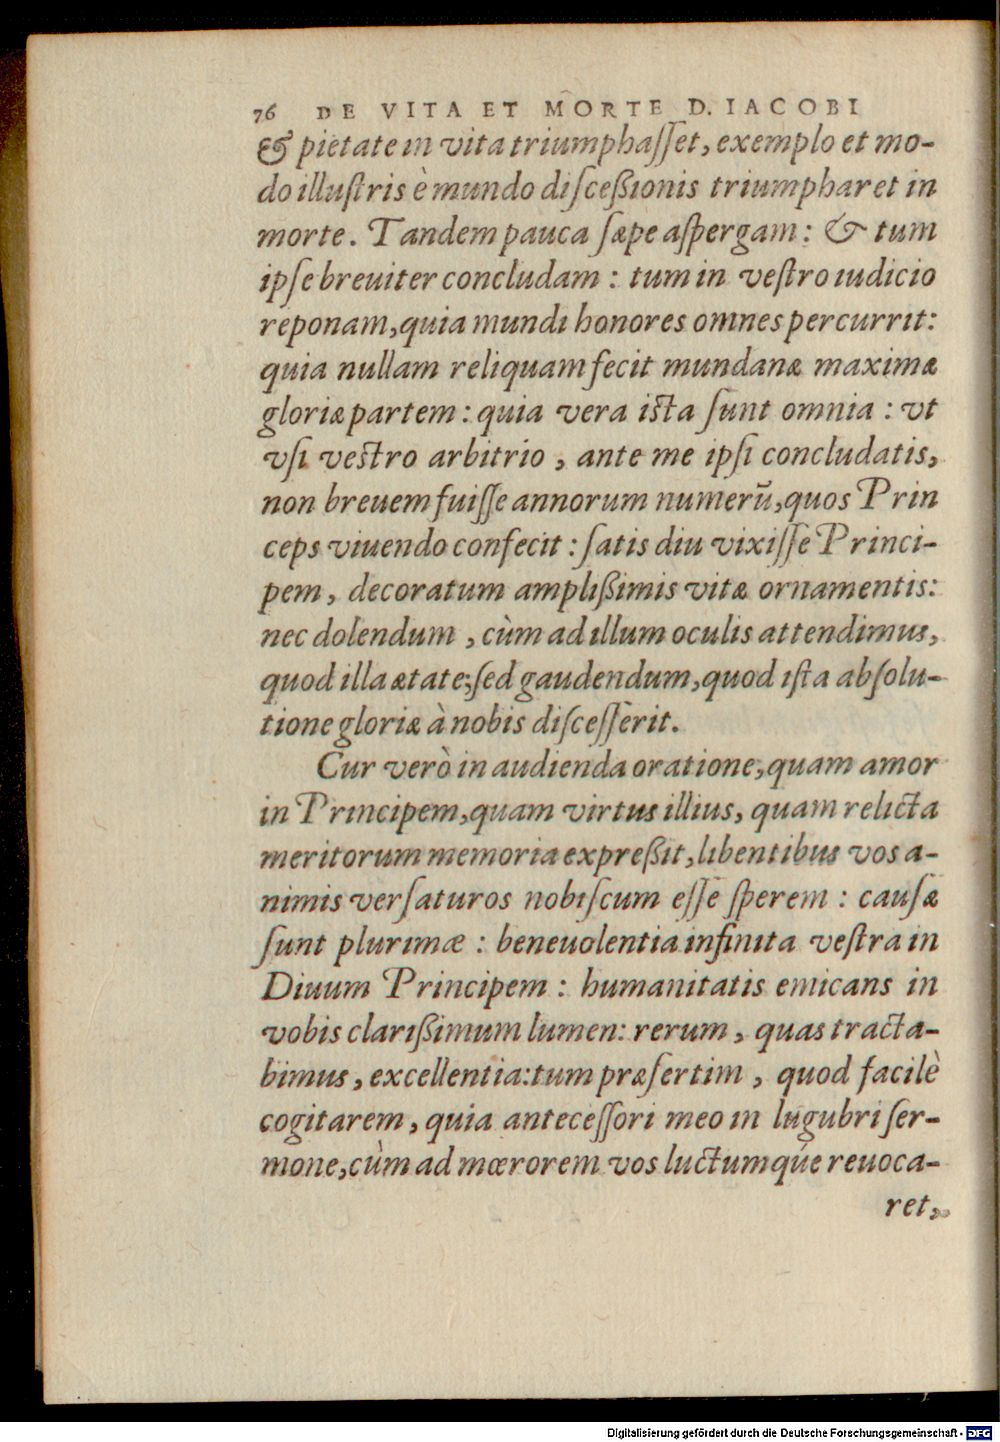 76 DE VITA ET MORTE D. IACOBI
& pietate in vita triumphaſſet, exemplo et mo-
do illuſtris è mundo diſceßionis triumpharet in
morte. Tandem pauca ſæpe aſpergam: & tum
ipſe breuiter concludam: tum in veſtro iudicio
reponam, quia mundi honores omnes percurrit:
quia nullam reliquam fecit mundanæ maximæ
gloriæ partem: quia vera iſta ſunt omnia: vt
vſi veſtro arbitrio, ante me ipſi concludatis,
non breuem fuiſſe annorum numerũ, quos Prin
ceps viuendo confecit: ſatis diu vixiſſe Princi-
pem, decoratum amplißimis vitæ ornamentis:
nec dolendum, cùm ad illum oculis attendimus,
quod illa ætate; ſed gaudendum, quod iſta abſolu-
tione gloriæ à nobis diſceſſerit.
Cur verò in audienda oratione, quam amor
in Principem, quam virtus illius, quam relicta
meritorum memoria expreßit, libentibus vos a-
nimis verſaturos nobiſcum eſſe ſperem: cauſæ
ſunt plurimæ: beneuolentia infinita veſtra in
Diuum Principem: humanitatis emicans in
vobis clarißimum lumen: rerum, quas tracta-
bimus, excellentia: tum præſertim, quod facilè
cogitarem, quia anteceſſori meo in lugubri ſer-
mone, cùm ad mœrorem vos luctumq́ue reuoca-
ret,
Digitalisierung gefördert durch die Deutsche Forschungsgemeinschaft - DFG